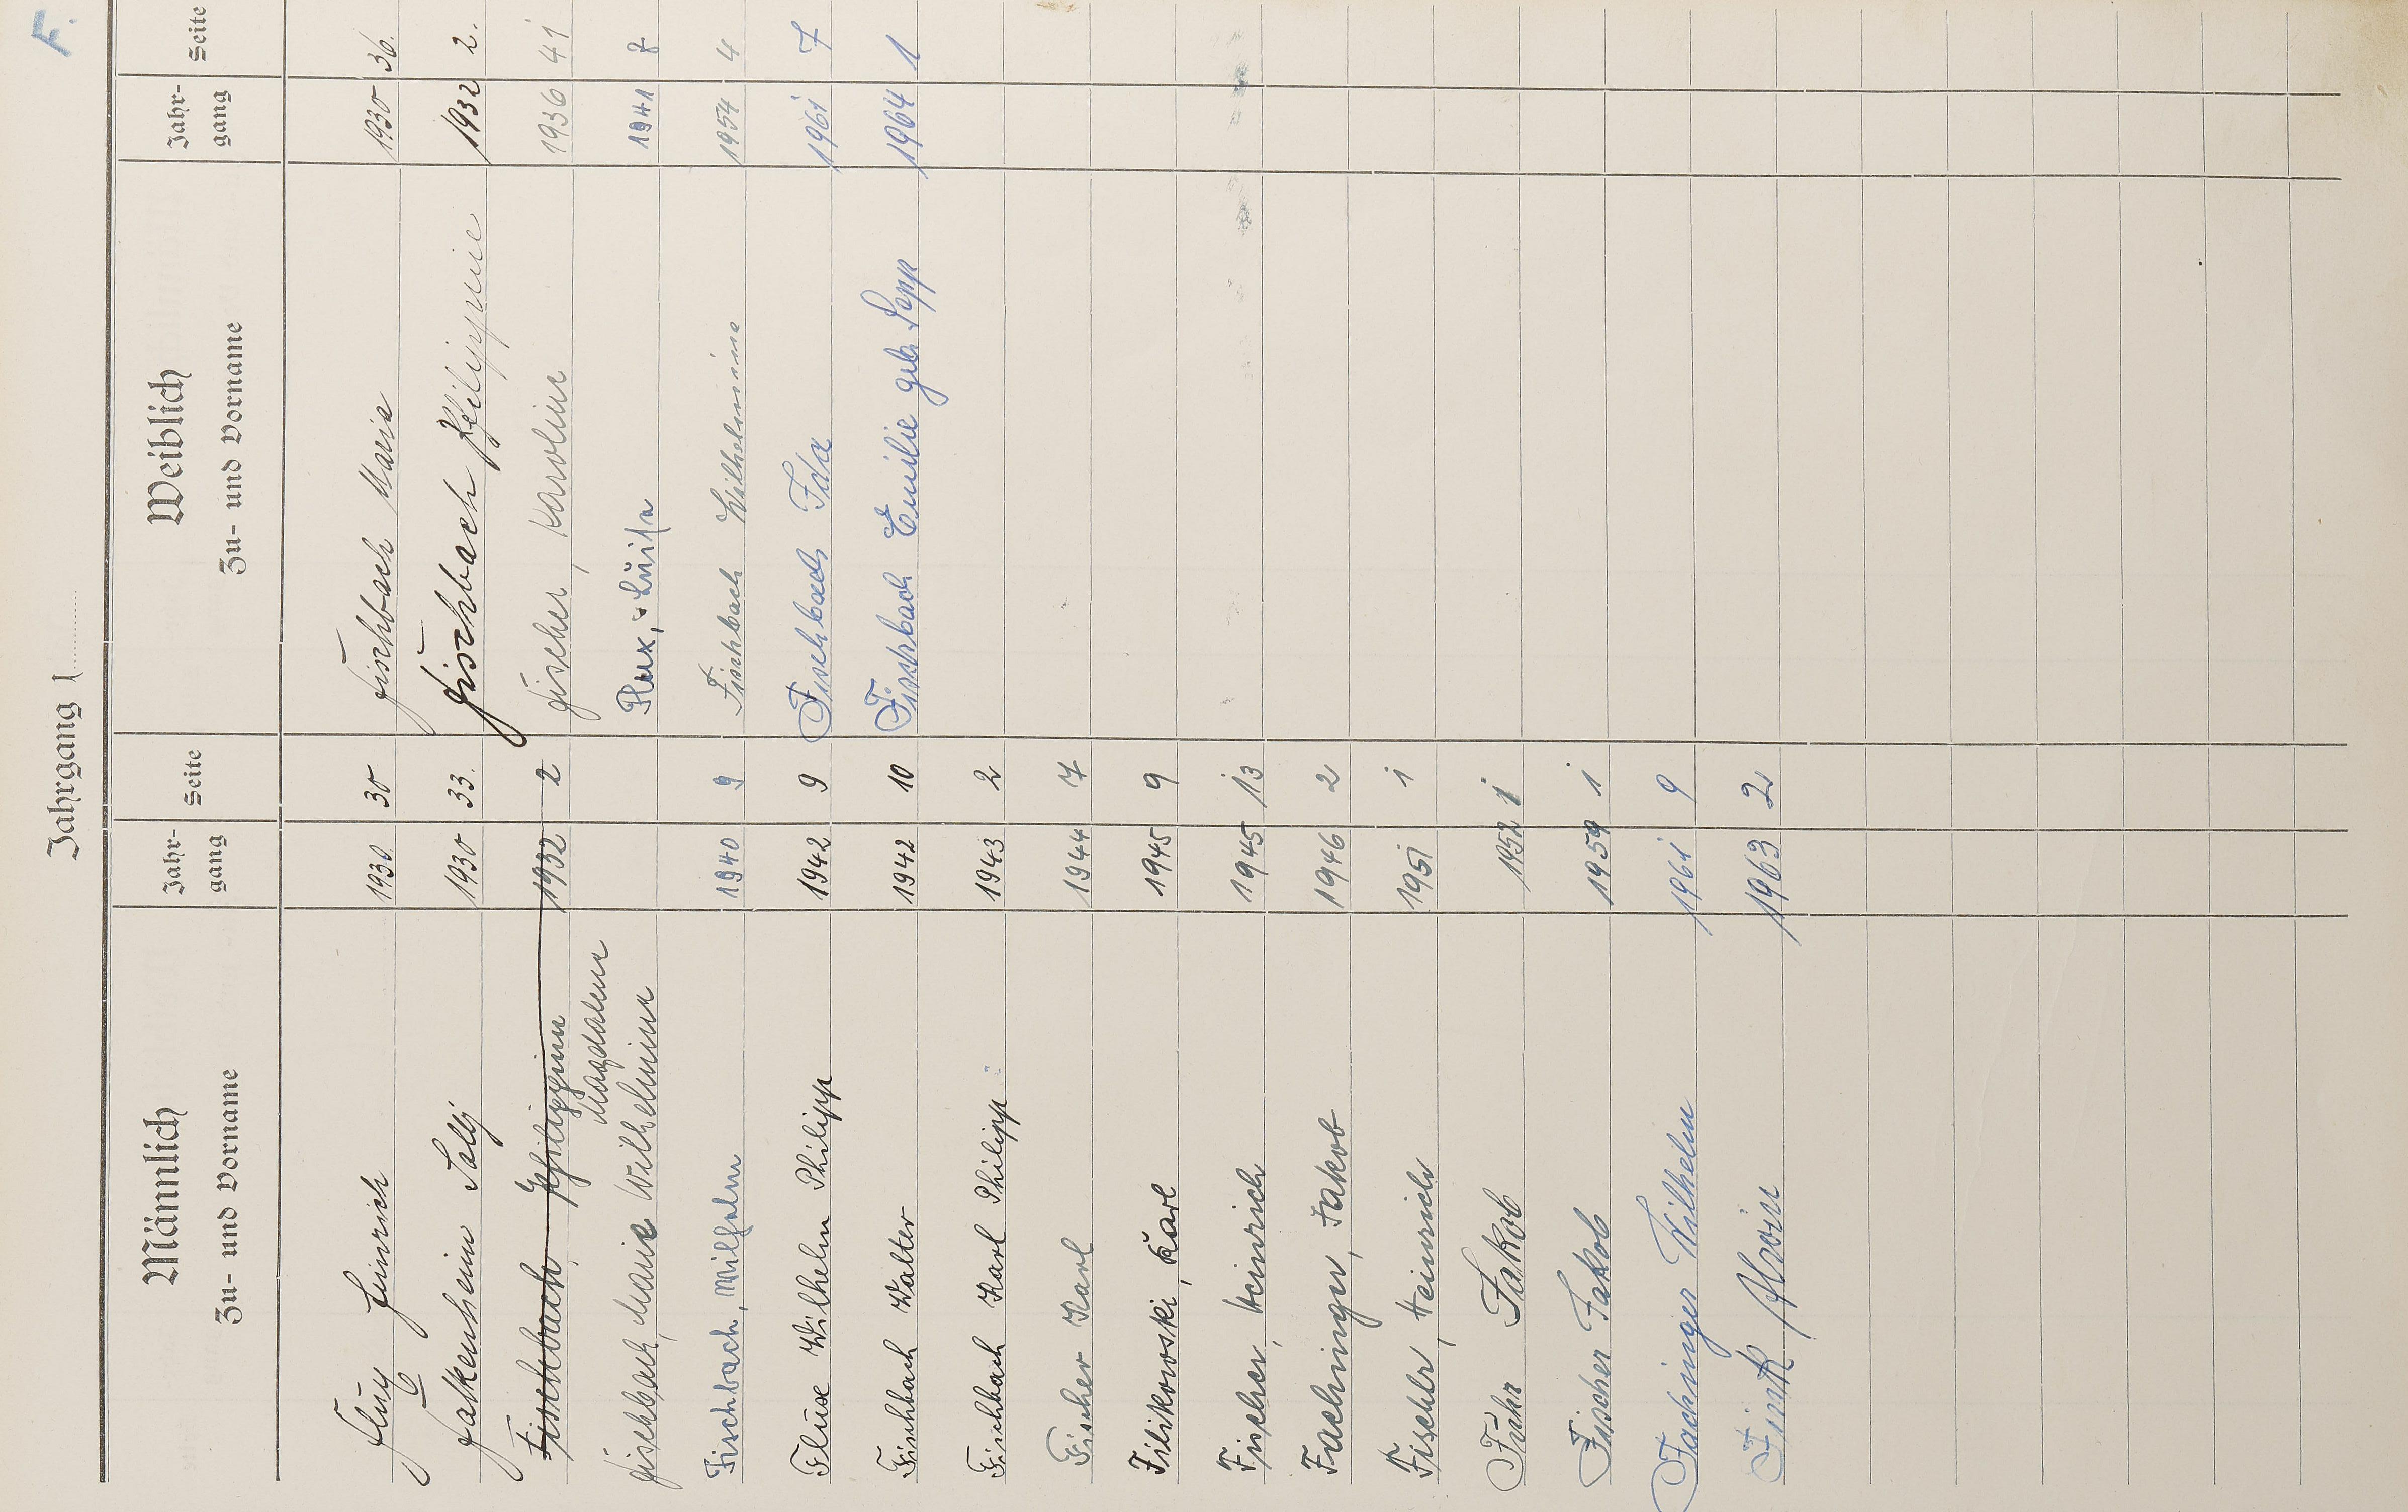 F.
Jahrgang 1
Männlich Jahr- Seite Weiblich Jahr- Seite
Zu- und Vorname gang Zu- und Vorname gang
Flux Heinrich 1930. 30 Fischbach Maria 1930 36.
Falkenheim Sally 1930 33. Fischbach Philippine 1932 2.
Fischbach Philippine 1932 2 Fischer, Karoline 1936 41
Magdalene
Fischbach, Marie Wilhelmine Flux, Luise 1941 7
Fischbach, Wilhelm 1940 9 Fischbach Wilhelmine 1954 4
Fluxe Wilhelm Philipp 1942 9 Fischbach Ida 1961 7
Fischbach Walter 1942 10 Fischbach Emilie geb. Sopp 1964 1
Fischbach Karl Philipp 1943 2
Fischer Karl 1944 7
Filikowski, Karl 1945 9
Fischer, Heinrich 1945 13
Fachinger, Jakob 1946 2
Fischer, Heinrich 1951 1
Führ Jakob 1952 1
Fischer Jakob 1959 1
Fachinger Wilhelm 1961 9
Fink Alwin 1963 2